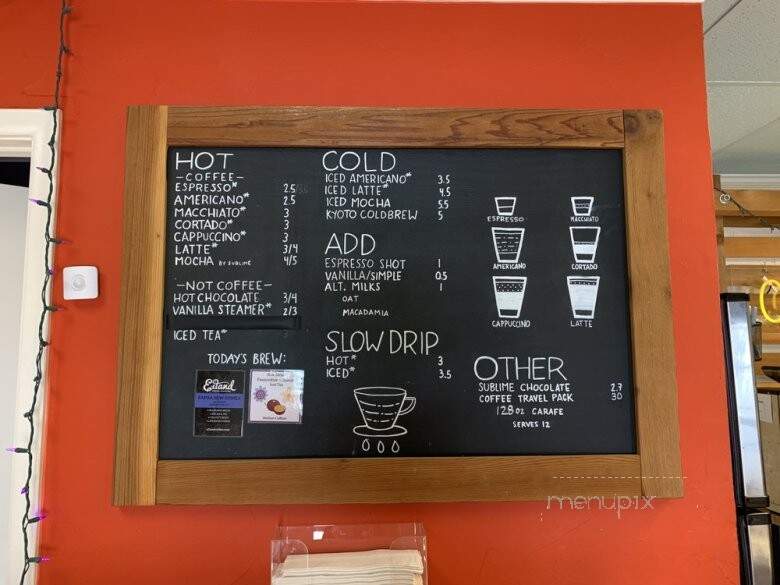 HOT
-COFFEE-
ESPRESSO* 2.5
AMERICANO* 2.5
MACCHIATO* 3
CORTADO* 3
CAPPUCCINO* 3
LATTE* 3/4
MOCHA BY SUBLIME 4/5
-NOT COFFEE-
HOT CHOCOLATE 3/4
VANILLA STEAMER* 2/3
ICED TEA*
TODAY'S BREW:
COLD
ICED AMERICANO* 3.5
ICED LATTE* 4.5
ICED MOCHA 5.5
KYOTO COLDBREW 5
ADD
ESPRESSO SHOT 1
VANILLA/SIMPLE 0.5
ALT. MILKS 1
OAT
MACADAMIA
SLOW DRIP
HOT* 3
ICED* 3.5
ESPRESSO
MACCHIATO
AMERICANO
CORTADO
CAPPUCCINO
LATTE
OTHER
SUBLIME CHOCOLATE 2.7
COFFEE TRAVEL PACK 30
128 OZ CARAFE
SERVES 12
menupix